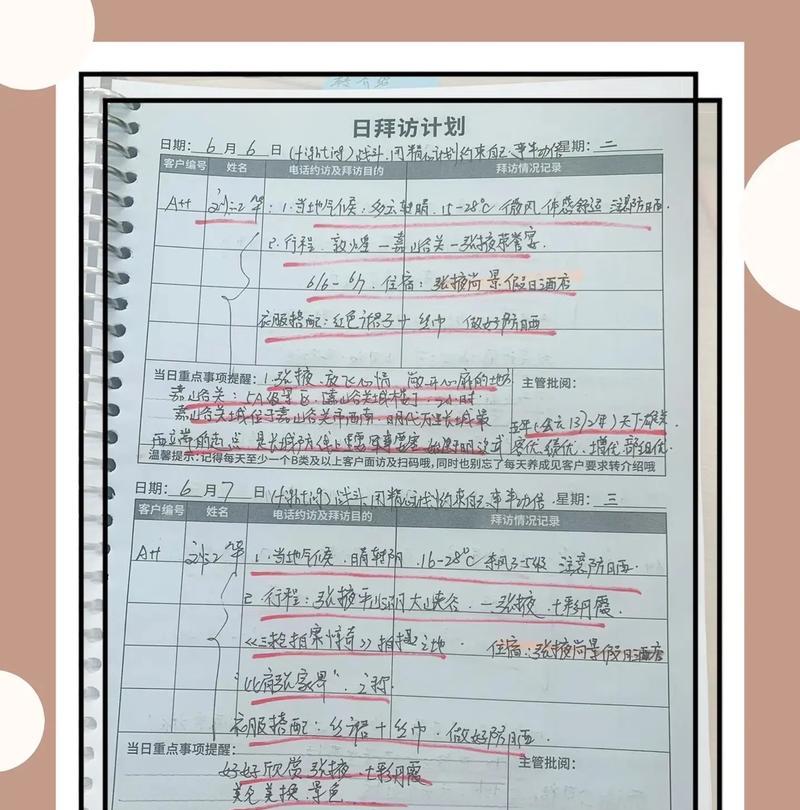 日拜访计划
日期: 6 月 6 日 战斗,用精心计划约束自己,事半功倍 星期: 二
客户编号 姓名 电话约访及拜访目的 拜访情况记录
A++ 等: 1.当地气候:多云转晴 15-28℃ 微风 体感舒适 注意防晒
2.行程:敦煌—嘉山谷关—张掖荣誉宴.
6/6-6/7.住宿:张掖尚景假日酒店
衣服搭配:红色裙子+丝巾 做好防晒
当日重点事项提醒: 1.张掖.放飞心情 的地方 主管批阅:
嘉山谷关:5A级景区,嘉山谷关城楼 小时
嘉山谷关城位于嘉山谷关市西南,明代万里长城最
五年(公元1372年)天下雄关.
西端的起点 是长城
客优、绩优、增优、部组优.
温馨提示:记得每天至少一个B类及以上客户面访及扫码哦,同时也别忘了每天养成见客户要求转介绍哦
日期: 6 月 7 日 战斗,用精心计划约束自己,事半功倍 星期: 三
客户编号 姓名 电话约访及拜访目的 拜访情况记录
A++ 等 1.当地气候:晴转阴.16-28℃ 东风3-5级 注意防晒.
2.行程:张掖平山湖大峡谷.—张掖.七彩丹霞.
《三枪拍案惊奇》拍摄之地 住宿:张掖尚景假日酒店
"北有张家界".之称.
衣服搭配:丝裙+丝巾.做好防晒.
当日重点事项提醒: 主管批阅:
好好欣赏 张掖.七彩丹霞
美仑美换 景色